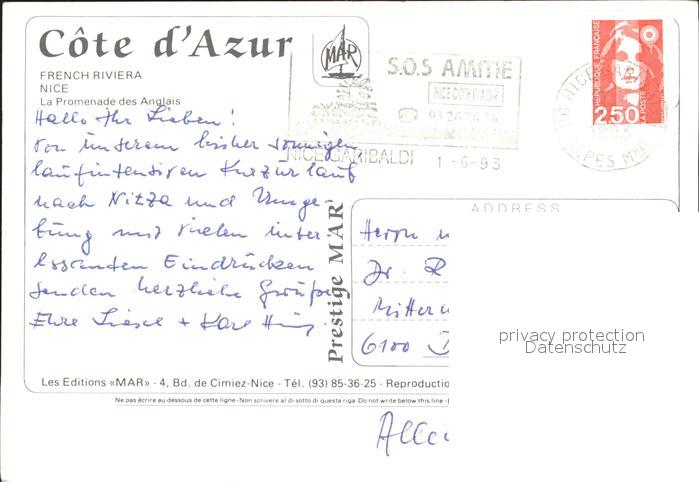 Côte d'Azur
FRENCH RIVIERA
NICE
La Promenade des Anglais
MAR
S.O.S AMITIE
NICE COTE D'AZUR
93 26 26 26
NICE GARIBALDI 1-6-93
REPUBLIQUE FRANÇAISE
2,50
LA POSTE
06 NICE
ALPES MMES
Hallo Ihr Lieben!
Von unserem bisher sonnigen,
laufintensiven Kurzurlaub
nach Nizza und Umge-
bung mit vielen inter-
essanten Eindrücken
senden herzliche Grüße
Eure Liesel + Karl
Prestige MAR
ADDRESS
Herrn
Dr. R
6100 D
privacy protection
Datenschutz
Les Editions «MAR» - 4, Bd. de Cimiez-Nice - Tél. (93) 85-36-25 - Reproductio
Ne pas écrire au dessous de cette ligne - Non scrivere al di sotto di questa riga - Do not write below this line -